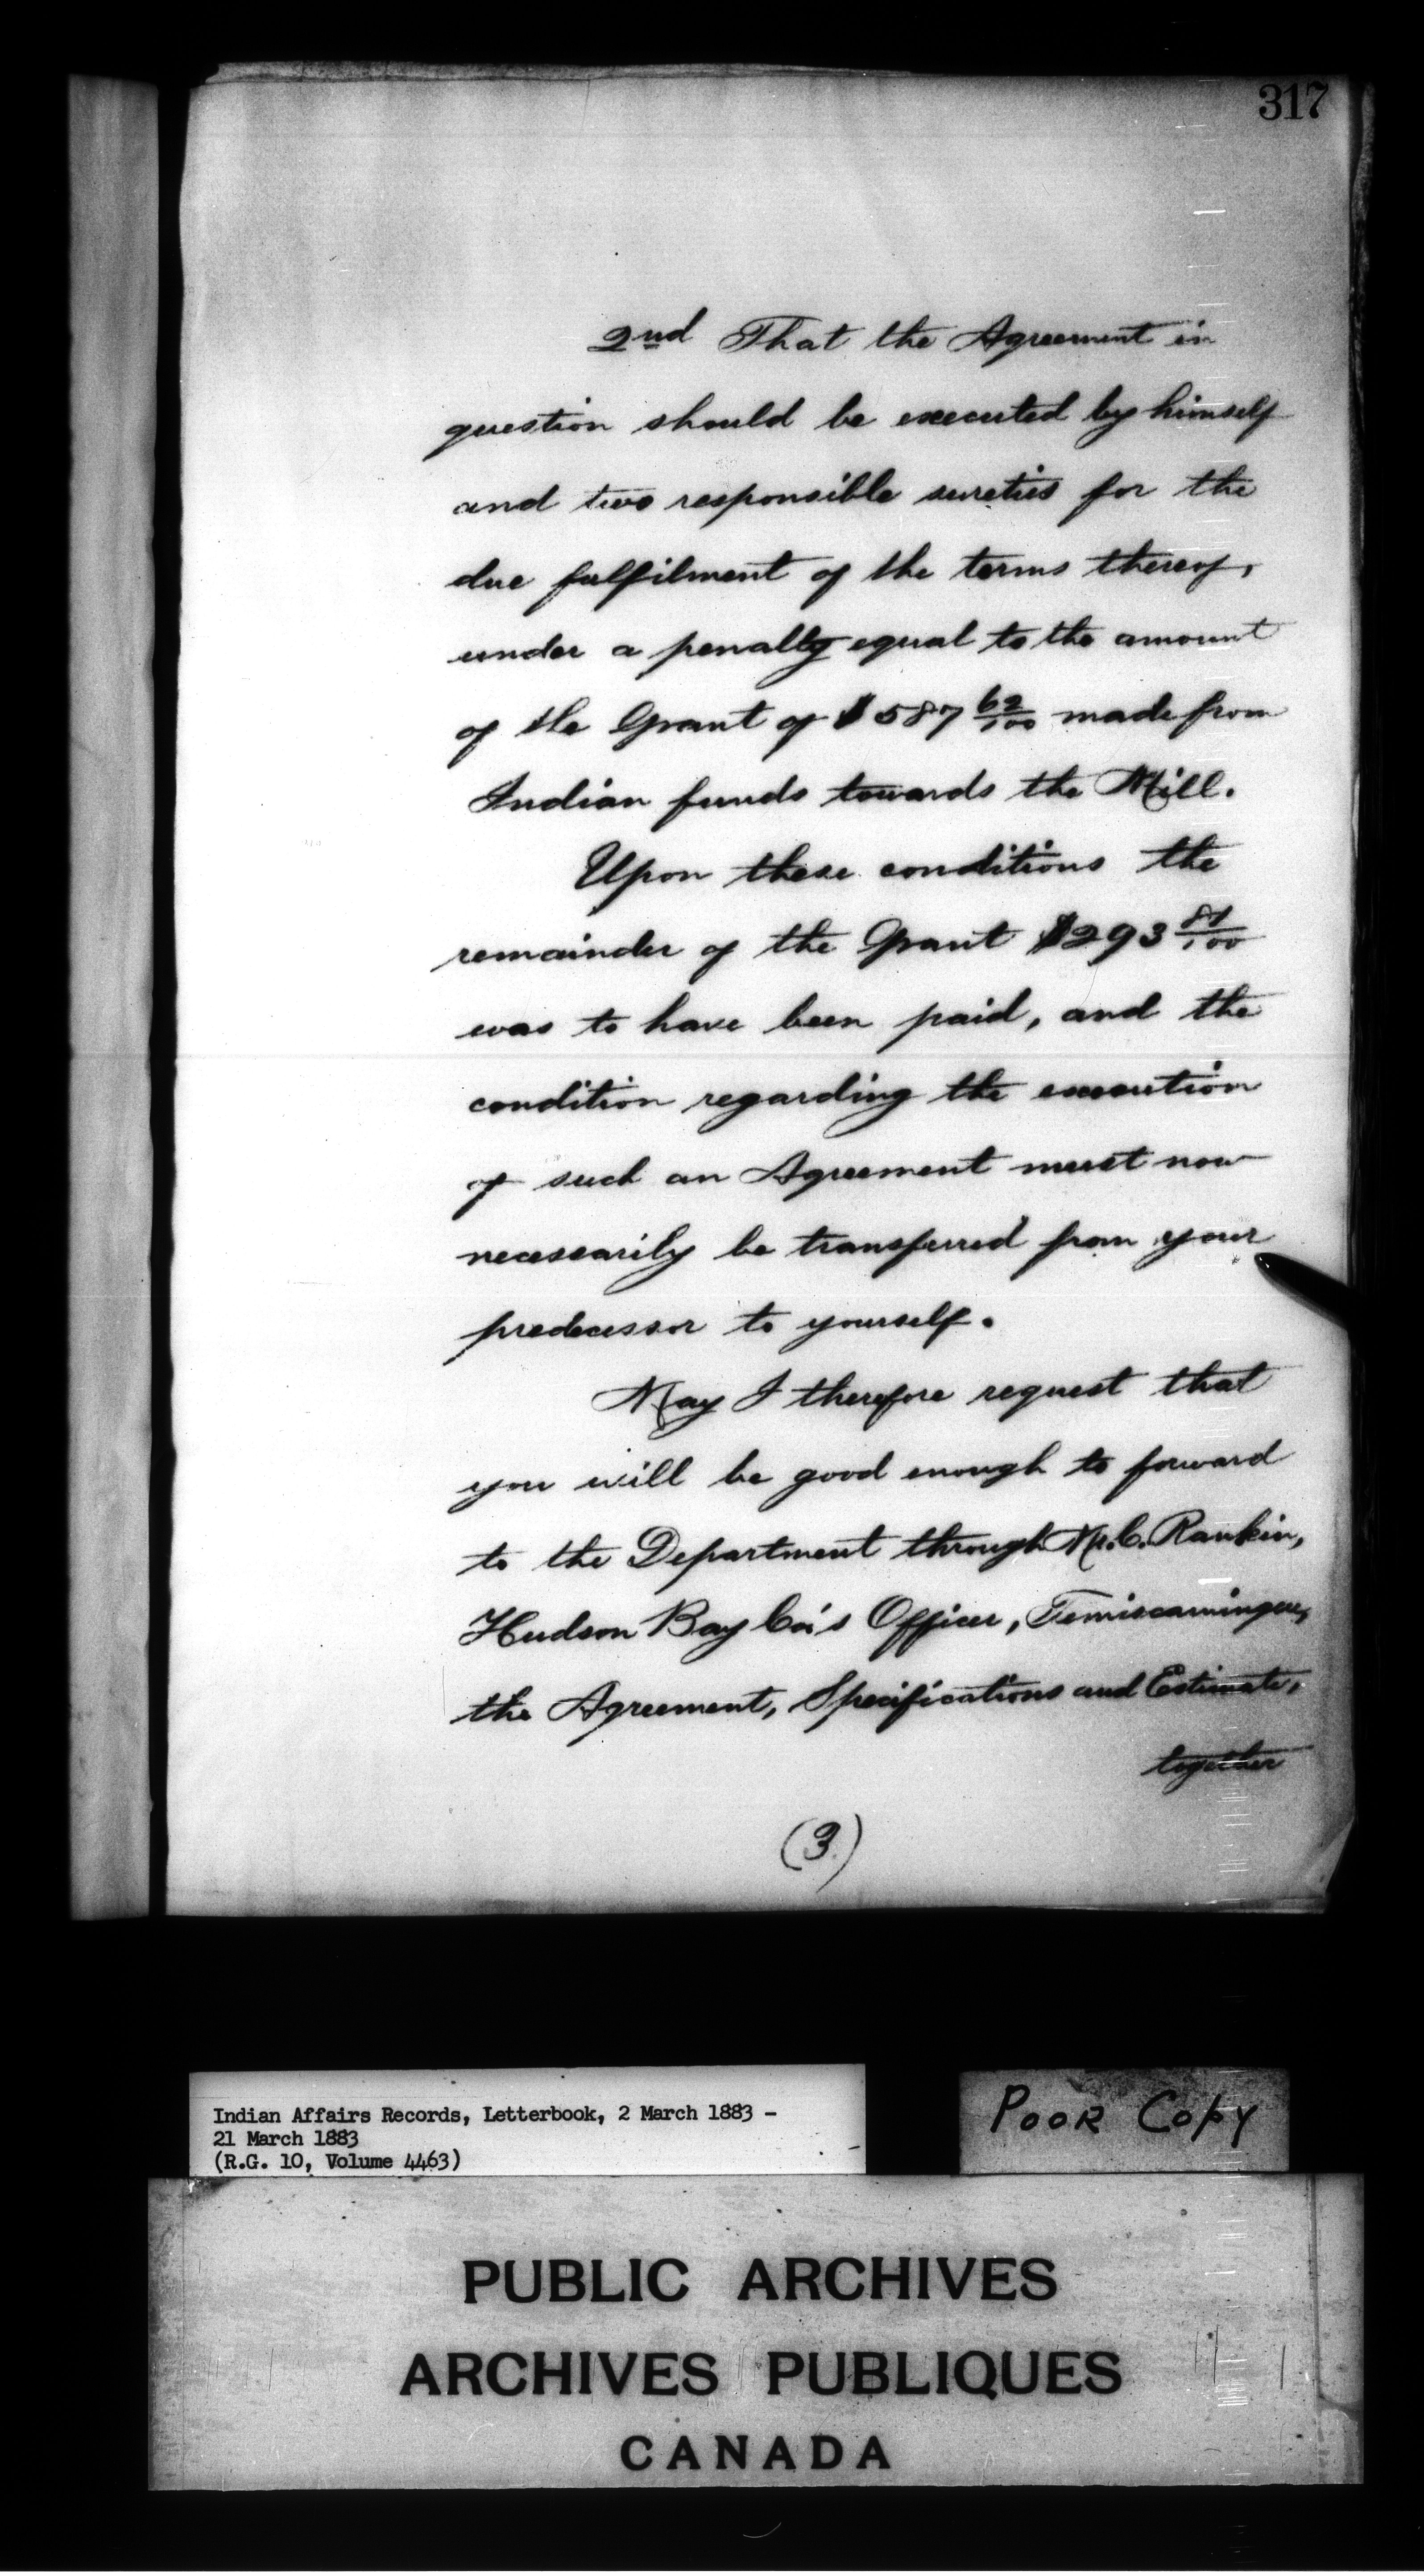 317
2nd That the Agreement in
question should be executed by himself
and two responsible sureties for the
due fulfilment of the terms thereof,
under a penalty equal to the amount
of the Grant of $587 62/100 made from
Indian funds towards the Mill.
Upon these conditions the
remainder of the Grant $293 81/100
was to have been paid, and the
condition regarding the execution
of such an Agreement must now
necessarily be transferred from your
predecessor to yourself.
May I therefore request that
you will be good enough to forward
to the Department through Mr. C. Rankin,
Hudson Bay Co's Officer, Temiscamingue,
the Agreement, Specifications and Estimate,
together
(3.)
Indian Affairs Records, Letterbook, 2 March 1883 -
21 March 1883
(R.G. 10, Volume 4463)
POOR COPY
PUBLIC ARCHIVES
ARCHIVES PUBLIQUES
CANADA